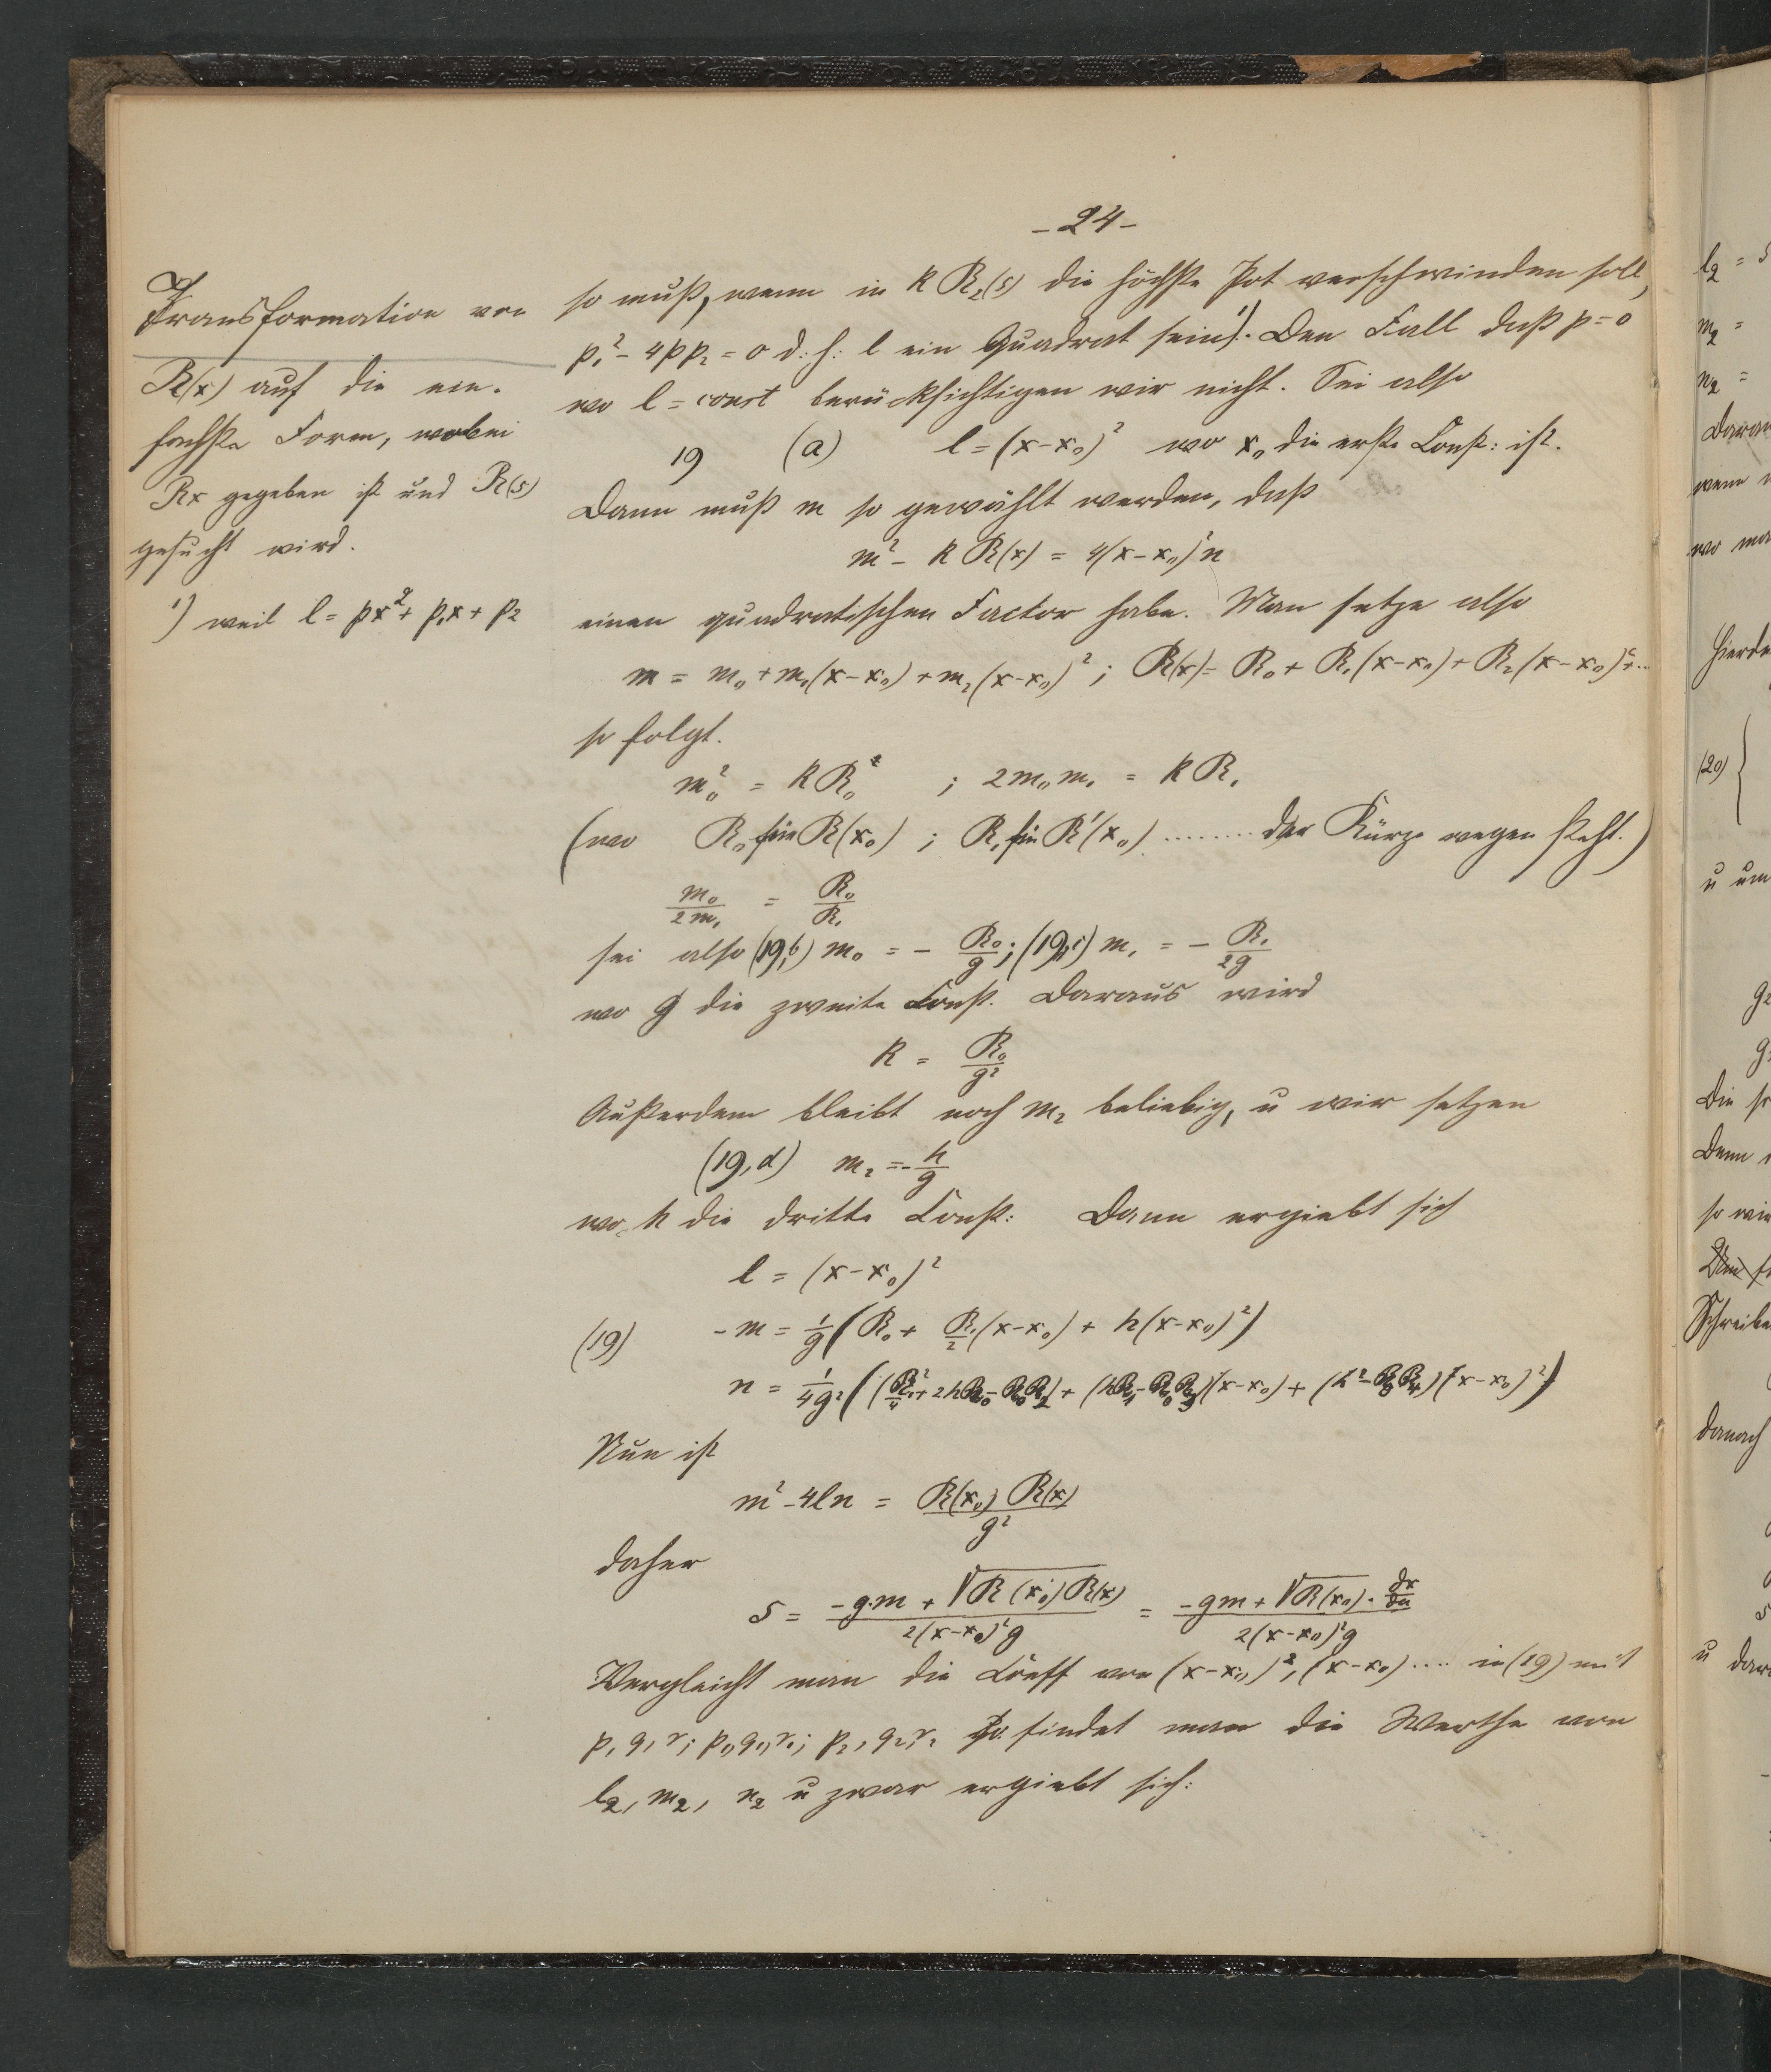 - 24 -
Transformation von
R(x) auf die ein-
fachste Form, wobei
Rx gegeben ist und R(s)
gesucht wird.
1) weil l = px² + p₁x + p₂
so muß, wenn in k R₂(s) die höchste Pot verschwinden soll,
p₁² - 4pp₂ = 0 d: h: l ein Quadrat sein¹⁾. Den Fall daß p = 0
wo l = const berücksichtigen wir nicht. Sei also
19 (a) l = (x-x₀)² wo x₀ die erste Const: ist.
Dann muß m so gewählt werden, daß
m² - k R(x) = 4(x-x₀)²n
einen quadratischen Factor habe. Man setze also
m = m₀ + m₁(x-x₀) + m₂(x-x₀)²; R(x) = R₀ + R₁(x-x₀) + R₂(x-x₀)² + ...
so folgt.
m₀² = k R₀ ; 2m₀m₁ = k R₁
(wo R₀ für R(x₀) ; R₁ für R'(x₀) ........ der Kürze wegen steht.)
m₀/2m₁ = R₀/R₁
sei also (19,b) m₀ = - R₀/g ; (19,c) m₁ = - R₁/2g
wo g die zweite Const. Daraus wird
k = R₀/g²
Außerdem bleibt noch m₂ beliebig, u wir setzen
(19,d) m₂ = - h/g
wo h die dritte Const: Dann ergiebt sich
l = (x-x₀)²
(19) -m = 1/g (R₀ + R₁/2 (x-x₀) + h(x-x₀)²)
n = 1/4g² ((R₁²/4 + 2hR₀ - R₀R₂) + (hR₁ - R₀R₃)(x-x₀) + (h² - R₀R₄)(x-x₀)²)
Nun ist
m² - 4ln = R(x₀) R(x)/g²
daher
s = (-g·m + √R(x₀)R(x))/2(x-x₀)²g = (-gm + √R(x₀) · dx/du)/2(x-x₀)²g
Vergleicht man die Coeff von (x-x₀)², (x-x₀) .... in (19) mit
p, q, r; p₁, q₁, r₁; p₂, q₂, r₂ so findet man die Werthe von
l₂, m₂, n₂ u zwar ergiebt sich:
l₂ =
m₂ =
n₂ =
wenn
(20) {
Die
Denn
danach